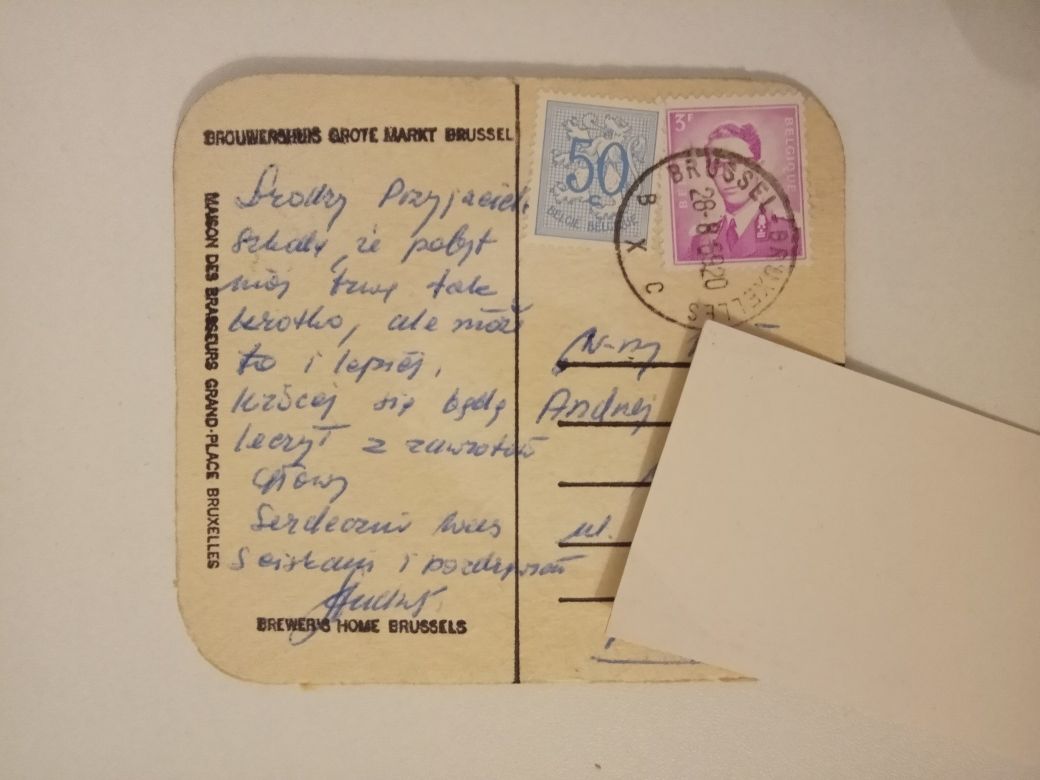 BROUWERSHUIS GROTE MARKT BRUSSEL
MAISON DES BRASSEURS GRAND-PLACE BRUXELLES
Drodzy Przyjaciele
szkoda, że pobyt
mój trwa tak
krótko, ale może
to i lepiej,
krócej się będę
leczył z zawrotów
głowy
Serdecznie Was
ściskam i pozdrawiam
Andrzej
BREWER'S HOME BRUSSELS
50
BELGIE BELGIQUE
3F
BELGIQUE
BRUSSEL-BRUXELLES
28-8
20
B X C
Andrzej
ul.